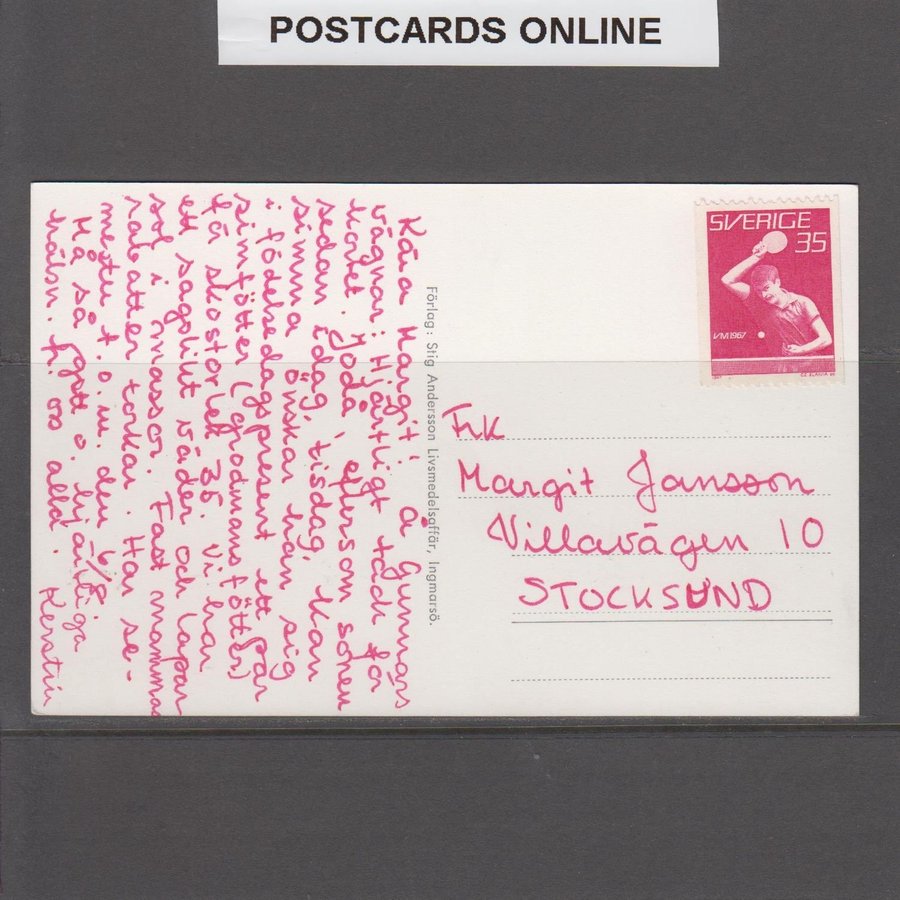 POSTCARDS ONLINE
Kära Margit, å Gunnars
vägnar: Hjärtligt tack för
kortet. Joda, eftersom sonen
sedan idag, tisdag, kan
simma önskar han sig
i födelsedagspresent ett par
simfötter (grodmansfötter)
för skostorlek 35. Vi har
ett sagolikt väder och lapar
sol i massor. Fast mammas
rabatter torkar. Har se-
mester t.o.m. den 6/8.
Må så gott o. hjärtliga
hälsn. fr. oss alla. Kerstin
Förlag: Stig Andersson Livsmedelsaffär, Ingmarsö.
SVERIGE
35
VM 1967
Frk
Margit Jansson
Villavägen 10
STOCKSUND